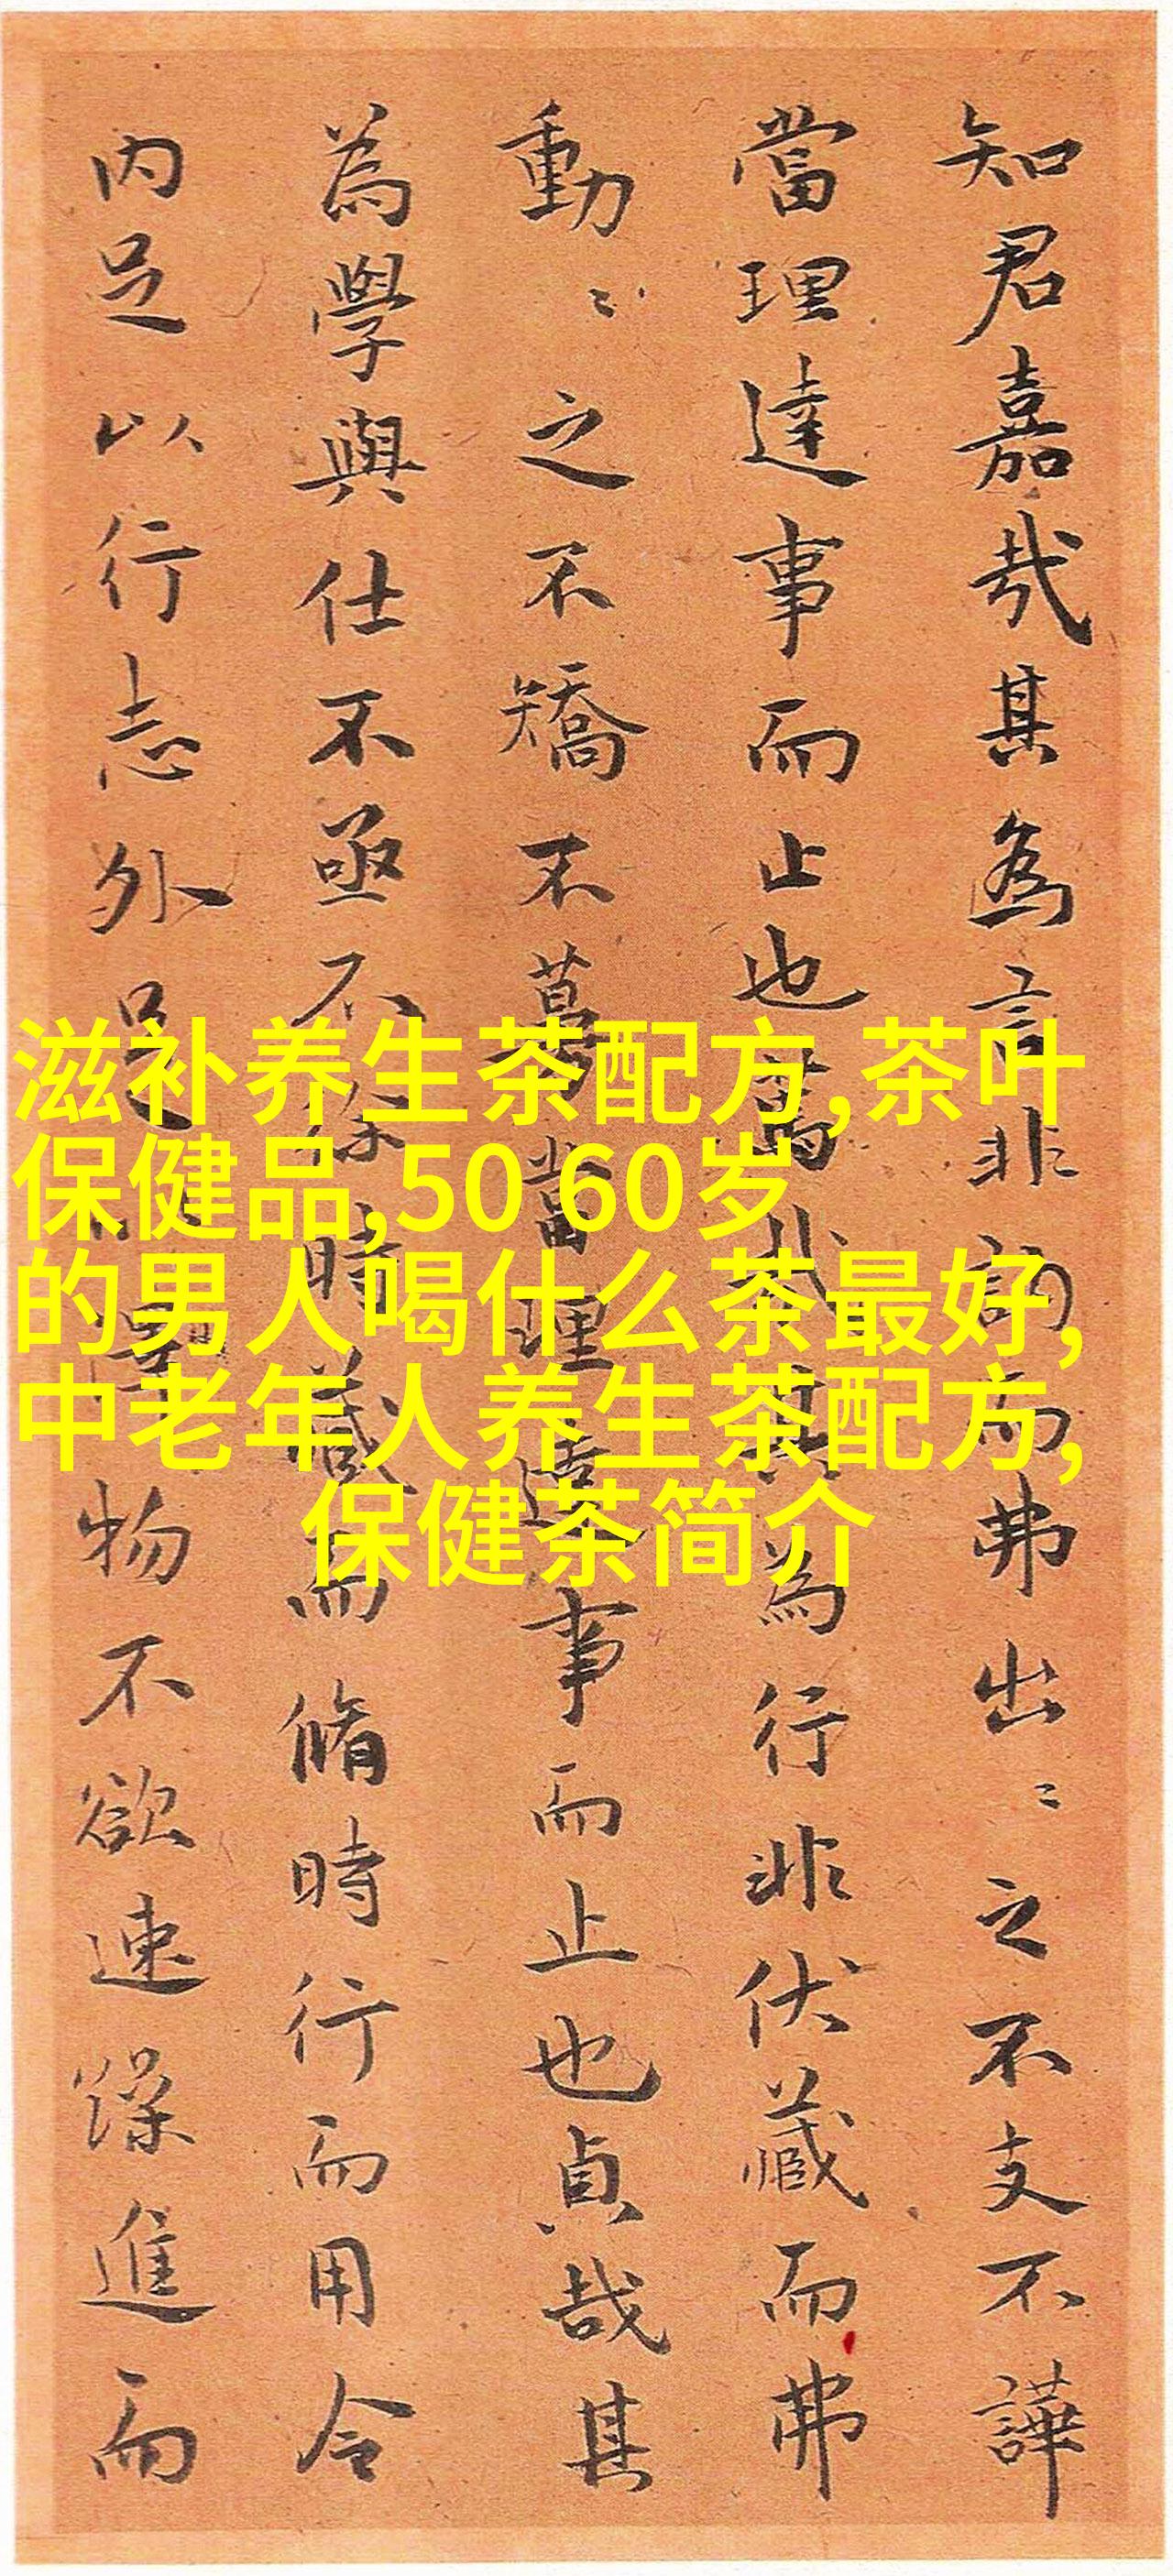 知君嘉哉其為言非訥而弗出〻之不支不譁
當理達事而止也哉其為行非伏藏而弗
動〻之不矯不當理達事而止也貞哉其
為學與仕不亟不徐時藏而脩時行而用令
内足以行志外足以物不欲速躁進而
滋补养生茶配方,茶叶
保健品,50 60岁
的男人喝什么茶最好,
中老年人养生茶配方,
保健茶简介